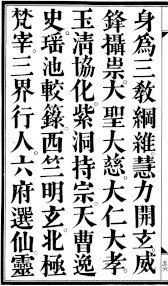 身為三敎綱維慧力開玄威
鋒攝祟大聖大慈。大仁大孝
玉清協化。紫洞持宗。天曹逸
史。瑤池較籙。西竺明玄。北極
梵宰。三界行人。六府選仙靈